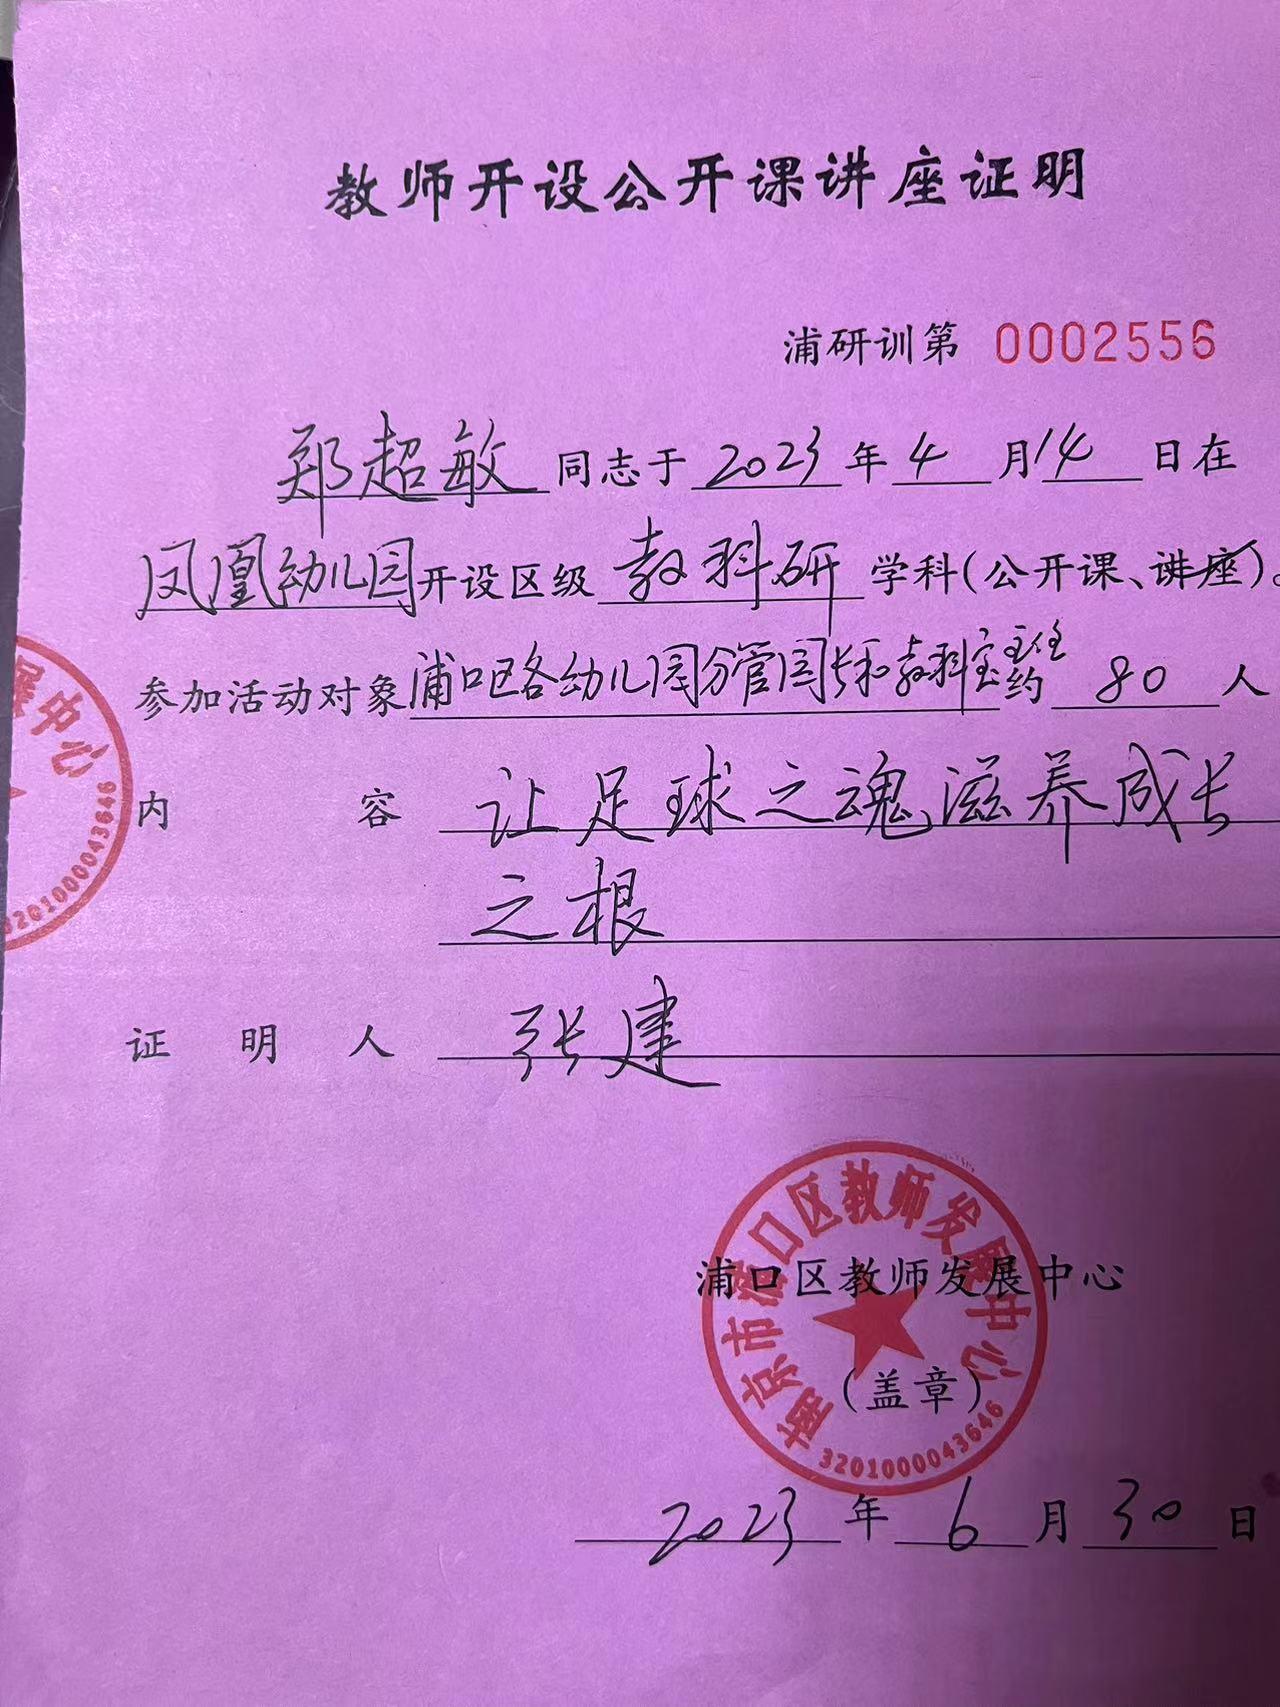 教师开设公开课讲座证明
浦研训第 0002556
郑超敏 同志于 2023 年 4 月 14 日在
凤凰幼儿园 开设区级 教科研 学科(公开课、讲座)。
参加活动对象 浦口区各幼儿园分管园长和教科室主任 约 80 人
内 容 让足球之魂滋养成长
之根
证 明 人 张建
浦口区教师发展中心
(盖章)
南京市浦口区教师发展中心
3201000043646
2023 年 6 月 30 日
展中心
3201000043646